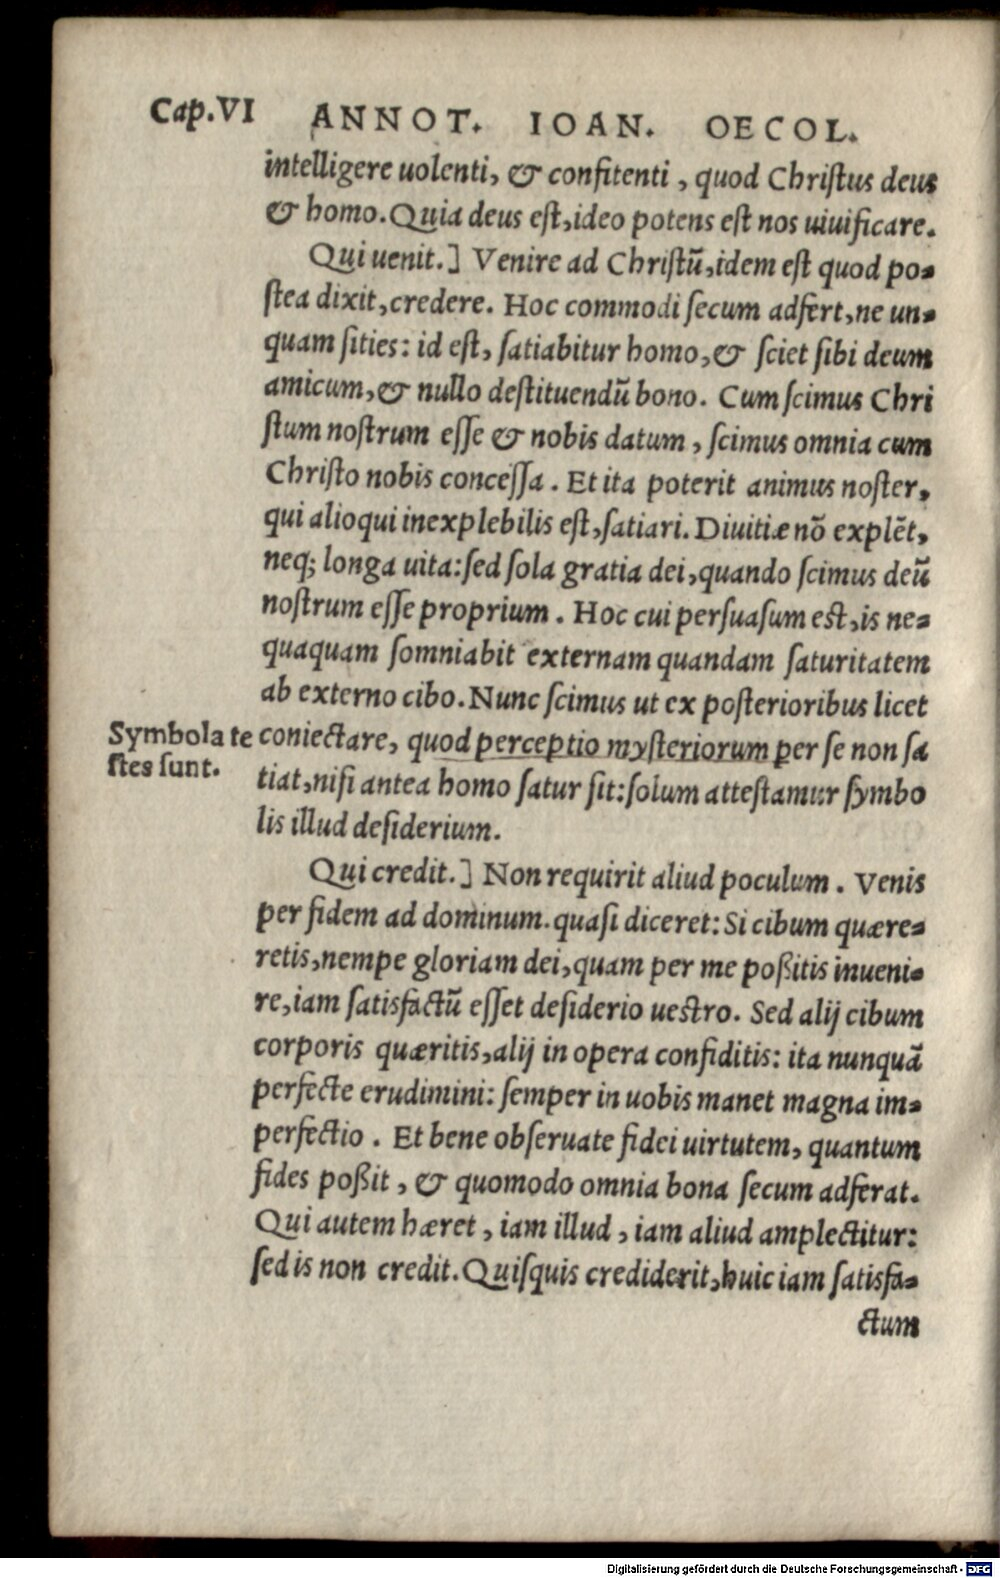 Cap.VI ANNOT. IOAN. OECOL.
intelligere uolenti, & confitenti, quod Chriſtus deus
& homo. Quia deus eſt, ideo potens eſt nos uiuificare.
Qui uenit.] Venire ad Chriſtū, idem eſt quod po-
ſtea dixit, credere. Hoc commodi ſecum adfert, ne un-
quam ſities: id eſt, ſatiabitur homo, & ſciet ſibi deum
amicum, & nullo deſtituendū bono. Cum ſcimus Chri
ſtum noſtrum eſſe & nobis datum, ſcimus omnia cum
Chriſto nobis conceſſa. Et ita poterit animus noſter,
qui alioqui inexplebilis eſt, ſatiari. Diuitiæ nō explēt,
neq; longa uita: ſed ſola gratia dei, quando ſcimus deū
noſtrum eſſe proprium. Hoc cui perſuaſum est, is ne-
quaquam ſomniabit externam quandam ſaturitatem
ab externo cibo. Nunc ſcimus ut ex poſterioribus licet
Symbola te
ſtes ſunt.
coniectare, quod perceptio myſteriorum per ſe non ſa
tiat, niſi antea homo ſatur ſit: ſolum atteſtamur ſymbo
lis illud deſiderium.
Qui credit.] Non requirit aliud poculum. Venis
per fidem ad dominum. quaſi diceret: Si cibum quære-
retis, nempe gloriam dei, quam per me poßitis inueni-
re, iam ſatisfactū eſſet deſiderio uestro. Sed alij cibum
corporis quæritis, alij in opera confiditis: ita nunquā
perfecte erudimini: ſemper in uobis manet magna im-
perfectio. Et bene obſeruate fidei uirtutem, quantum
fides poßit, & quomodo omnia bona ſecum adferat.
Qui autem hæret, iam illud, iam aliud amplectitur:
ſed is non credit. Quiſquis crediderit, huic iam ſatisfa-
ctum
Digitalisierung gefördert durch die Deutsche Forschungsgemeinschaft - DFG